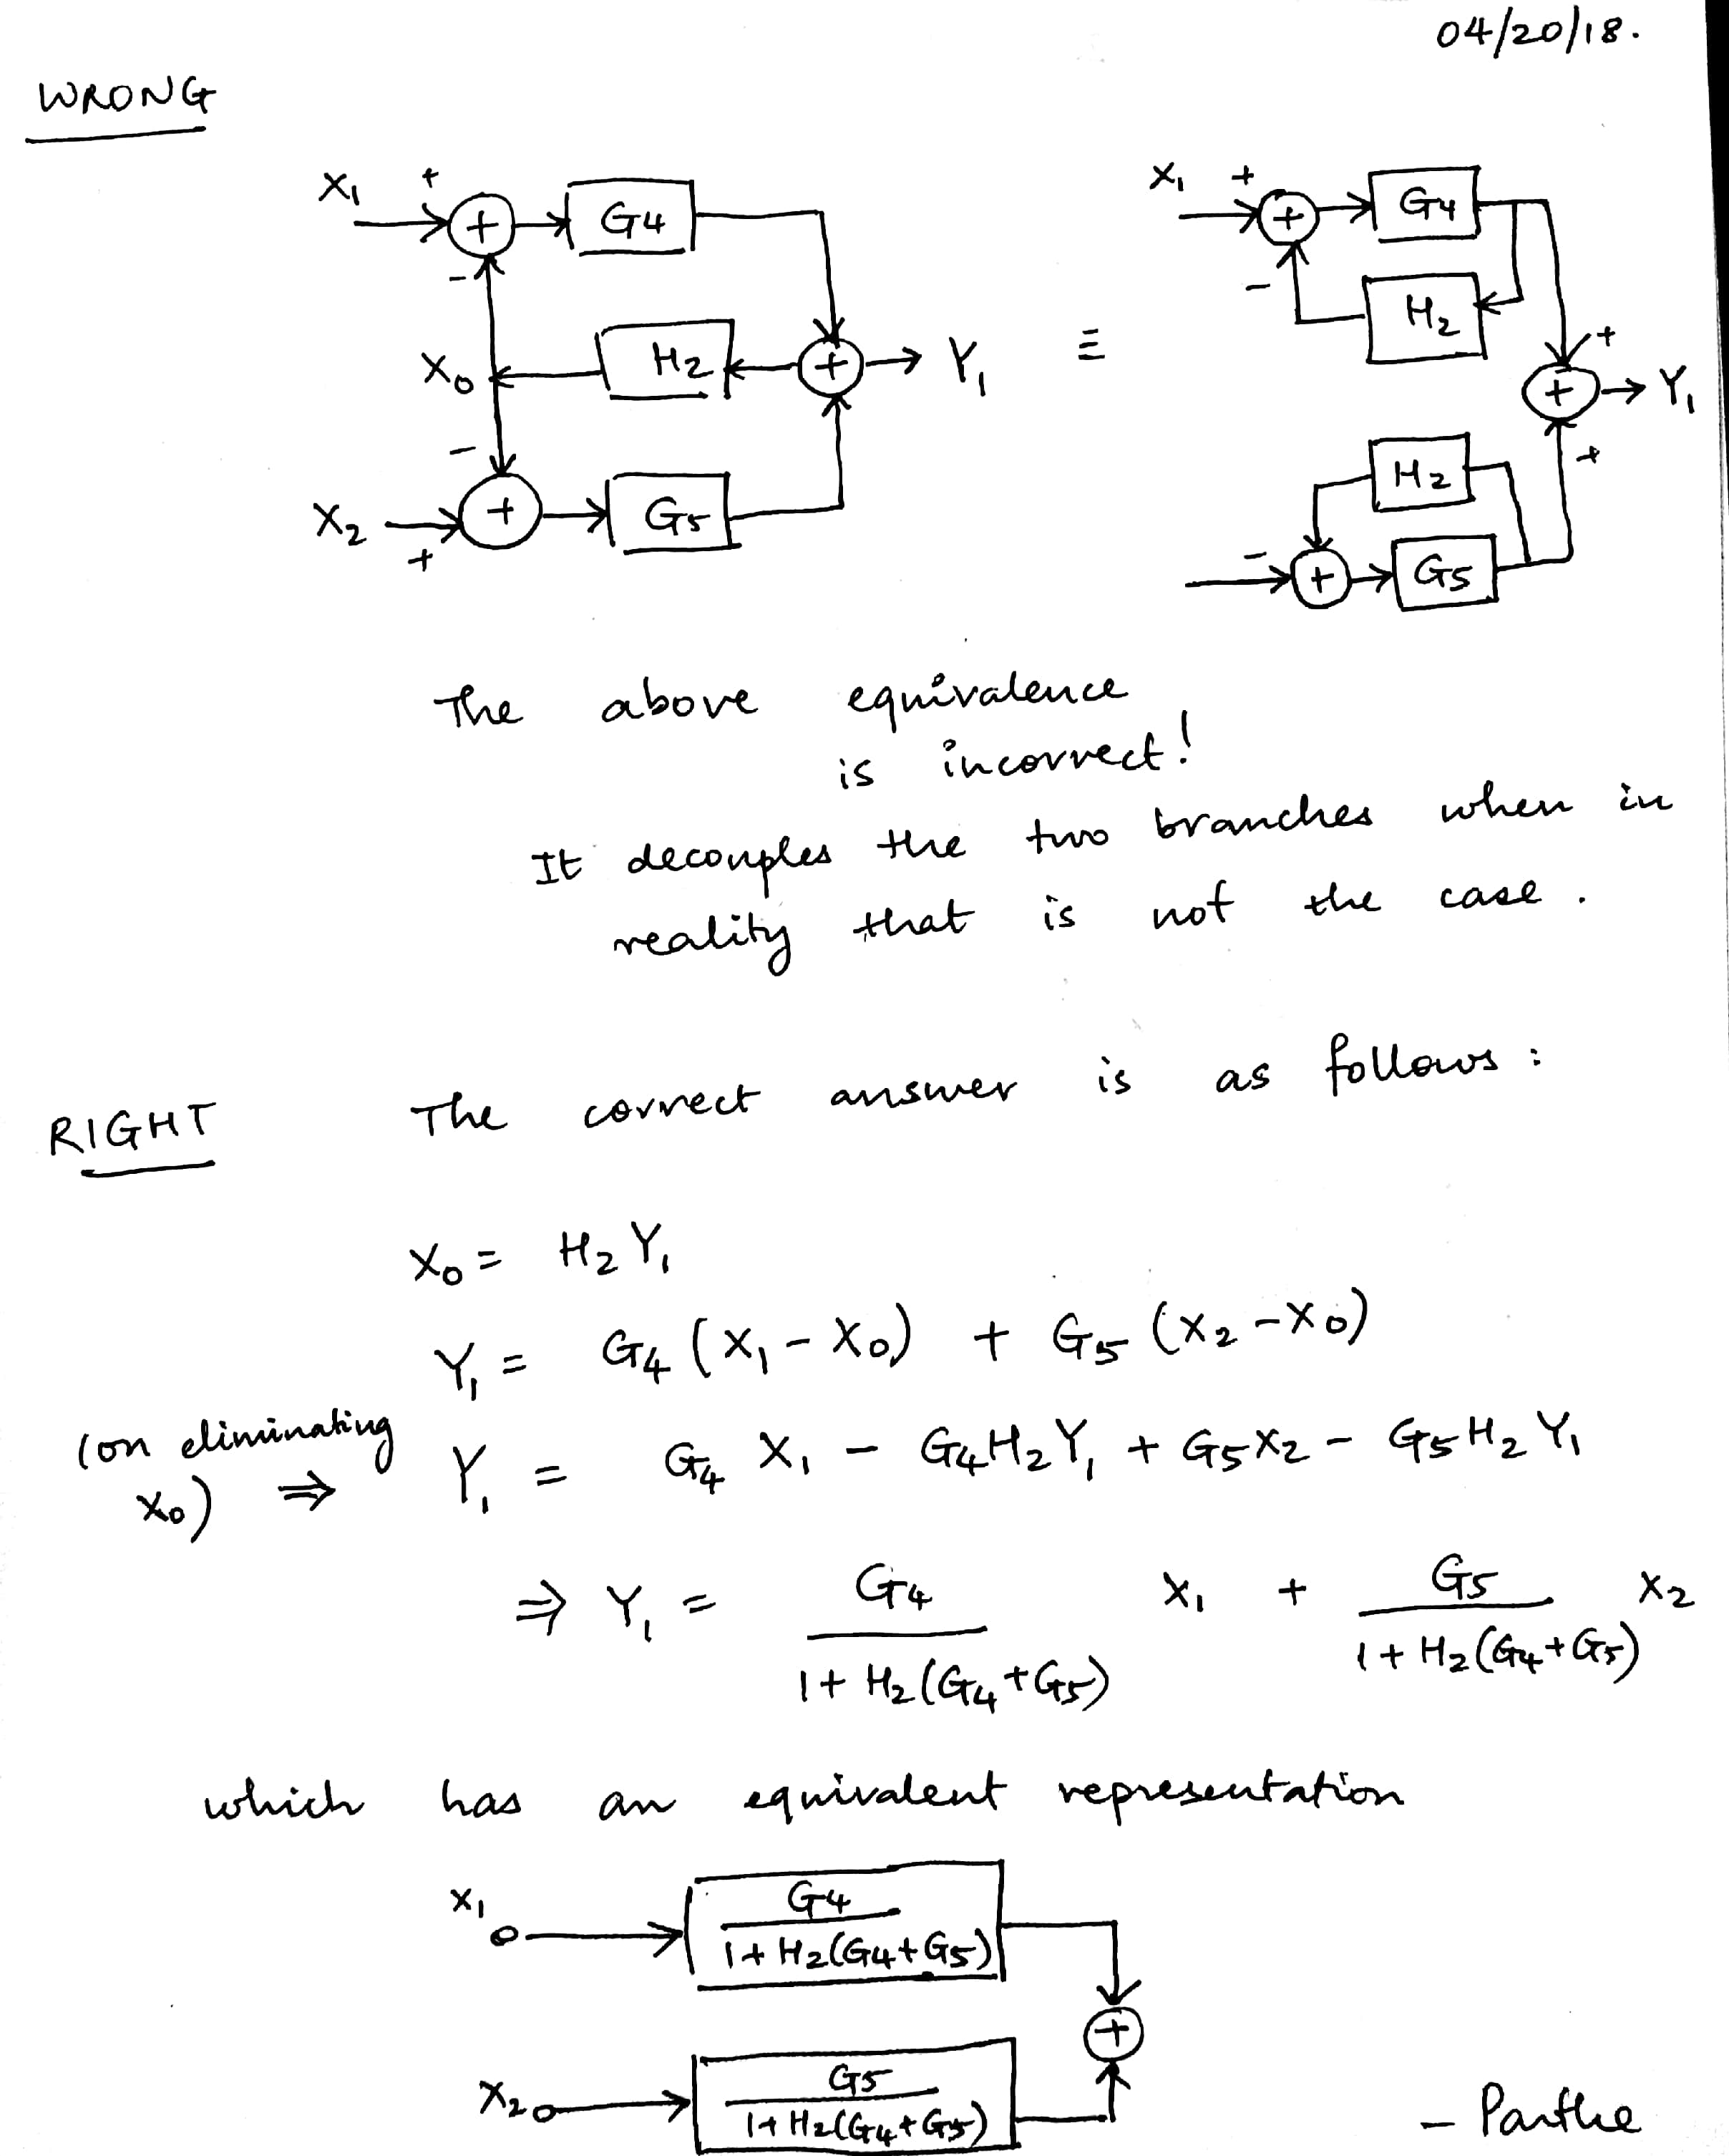 04/20/18.
WRONG
X₁ + + G4
-
X₀ H₂ + Y₁
-
X₂ + + G5
≡
X₁ + + G4
- H₂
+
+ Y₁
H₂ +
- + G5
The above equivalence
is incorrect!
It decouples the two branches when in
reality that is not the case.
RIGHT The correct answer is as follows:
X₀ = H₂ Y₁
Y₁ = G₄ (X₁ - X₀) + G₅ (X₂ - X₀)
(on eliminating
X₀) ⇒ Y₁ = G₄ X₁ - G₄H₂Y₁ + G₅X₂ - G₅H₂Y₁
⇒ Y₁ = G₄ / 1 + H₂(G₄+G₅) X₁ + G₅ / 1 + H₂(G₄+G₅) X₂
which has an equivalent representation
X₁ G4 / 1 + H₂(G4+G5)
+
X₂ G5 / 1 + H₂(G4+G5)
- Parthe